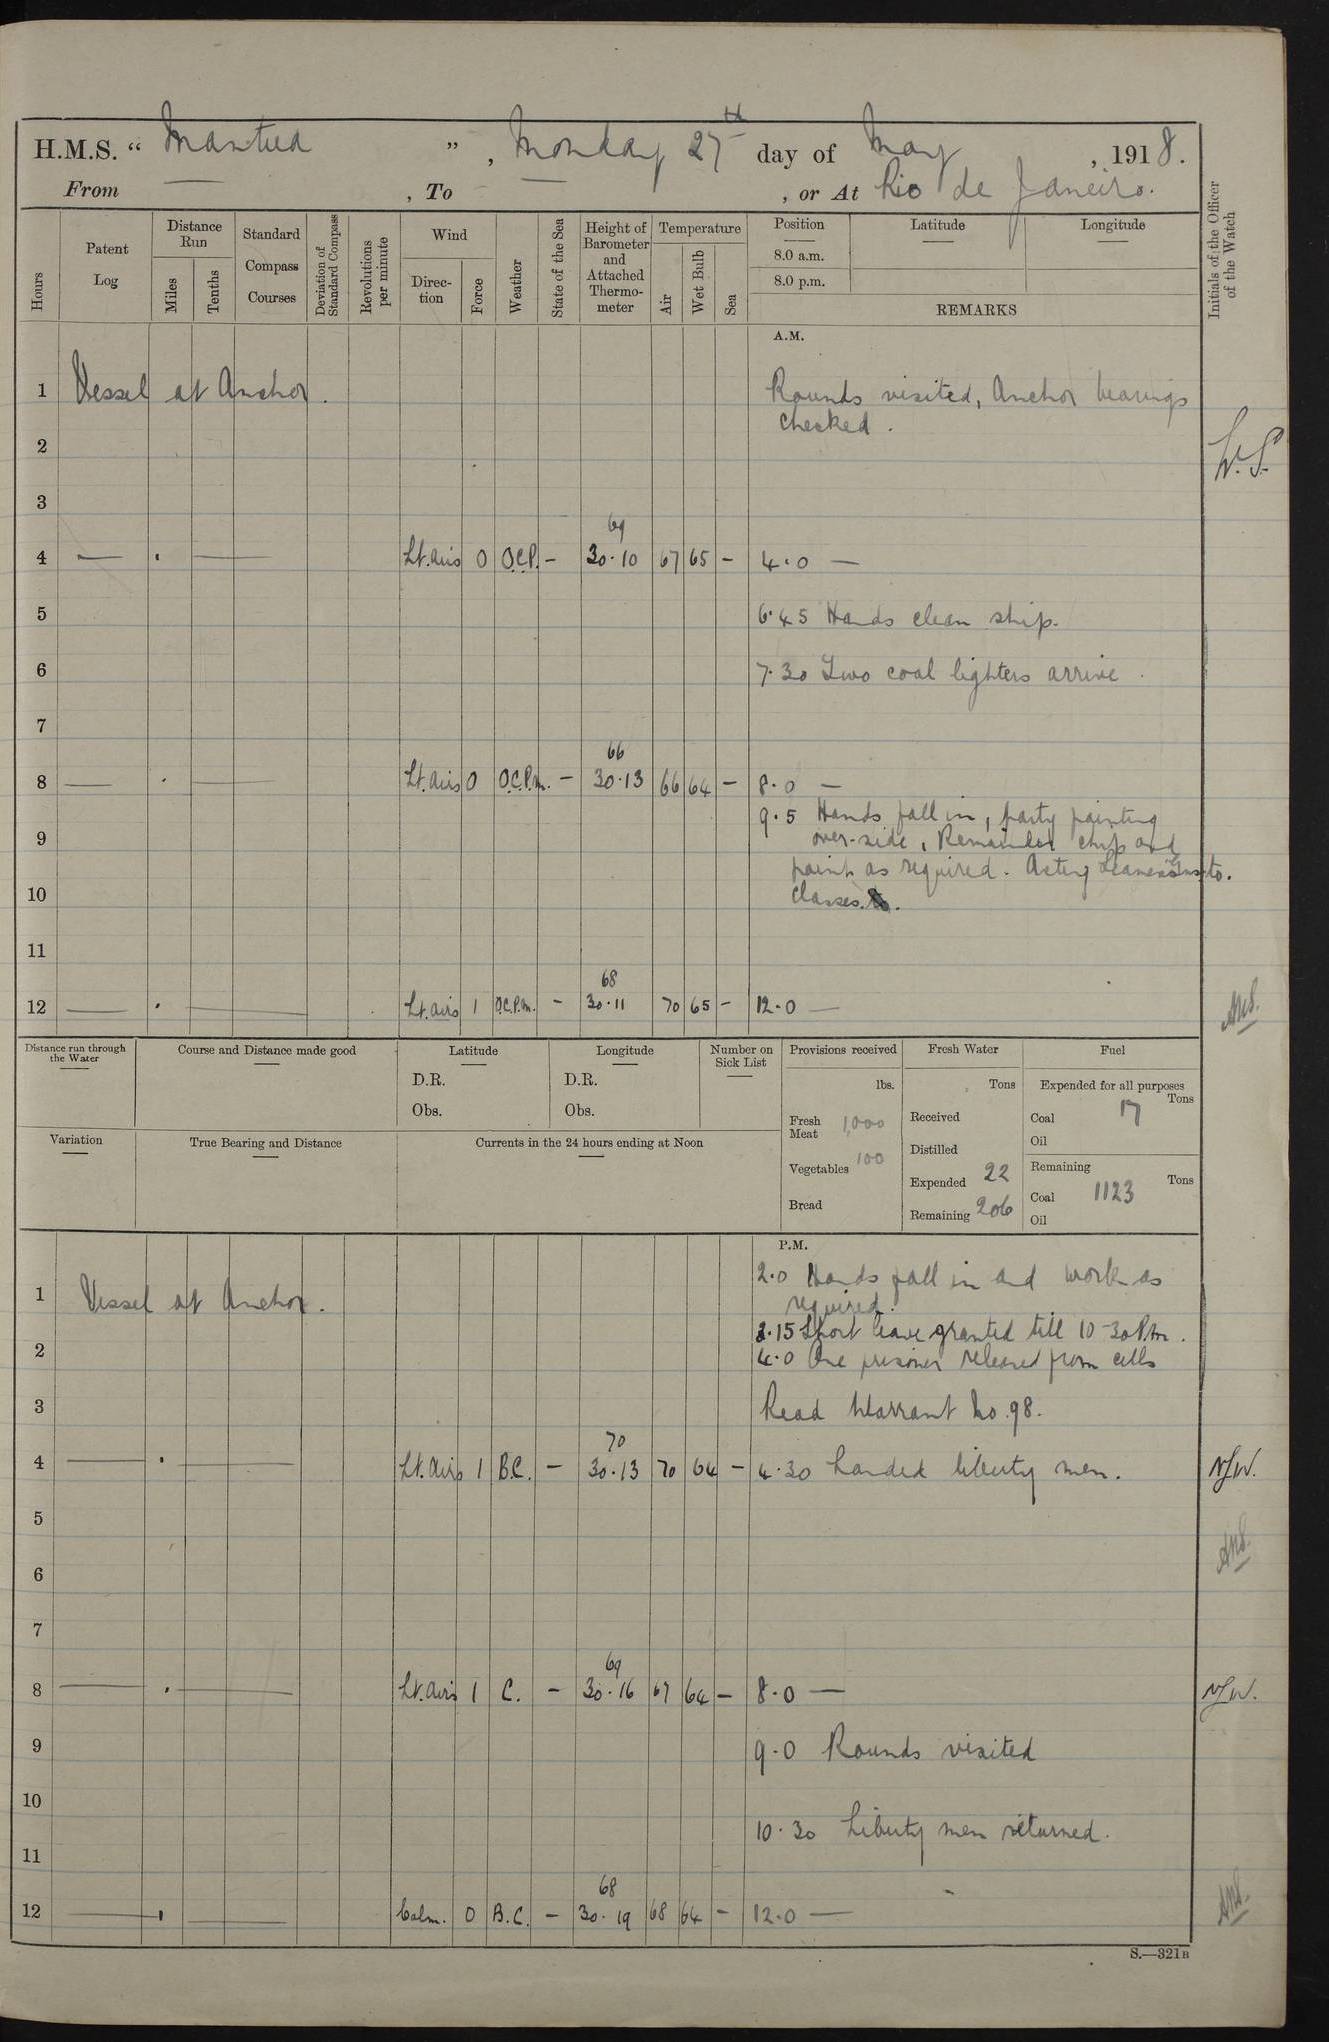 H.M.S. “ Mantua ” , Monday 27th day of May , 1918.
From — , To — , or At Rio de Janeiro.
Hours
Patent Log
Distance Run
Miles
Tenths
Standard Compass Courses
Deviation of Standard Compass
Revolutions per minute
Wind
Direction
Force
Weather
State of the Sea
Height of Barometer and Attached Thermometer
Temperature
Air
Wet Bulb
Sea
Position
8.0 a.m.
8.0 p.m.
Latitude
Longitude
REMARKS
Initials of the Officer of the Watch
A.M.
1 Vessel at Anchor. Rounds visited, Anchor bearings
checked.
2 W.S.
3
69
4 — . — Lt. airs 0 O.C.P. — 30.10 67 65 — 4.0 —
5 6.45 Hands clean ship.
6 7.30 Two coal lighters arrive.
7
66
8 — . — Lt. airs 0 O.C.P.m. — 30.13 66 64 — 8.0 —
9.5 Hands fall in, party painting
9 over-side, Remainder chip and
paint as required. Acting Seamen Guns to.
10 classes.
11
68
12 — . — Lt. airs 1 O.C.P.m. — 30.11 70 65 — 12.0 —
Distance run through the Water
Course and Distance made good
Latitude
D.R.
Obs.
Longitude
D.R.
Obs.
Number on Sick List
Provisions received
lbs.
Fresh Meat 1,000
Vegetables 100
Bread
Fresh Water
Tons
Received
Distilled
Expended 22
Remaining 206
Fuel
Expended for all purposes
Tons
Coal 17
Oil
Remaining
Tons
Coal 1123
Oil
Variation
True Bearing and Distance
Currents in the 24 hours ending at Noon
P.M.
2.0 Hands fall in and work as
1 Vessel at Anchor. required.
3.15 Short leave granted till 10-30 P.m.
2 4.0 One prisoner released from cells
3 Read Warrant No. 98.
70
4 — . — Lt. airs 1 B.C. — 30.13 70 64 — 4.30 Landed liberty men.
5
6
7
69
8 — . — Lt. airs 1 C. — 30.16 67 64 — 8.0 —
9 9.0 Rounds visited
10
10.30 Liberty men returned.
11
68
12 — . — Calm. 0 B.C. — 30.19 68 64 — 12.0 —
S.—321B